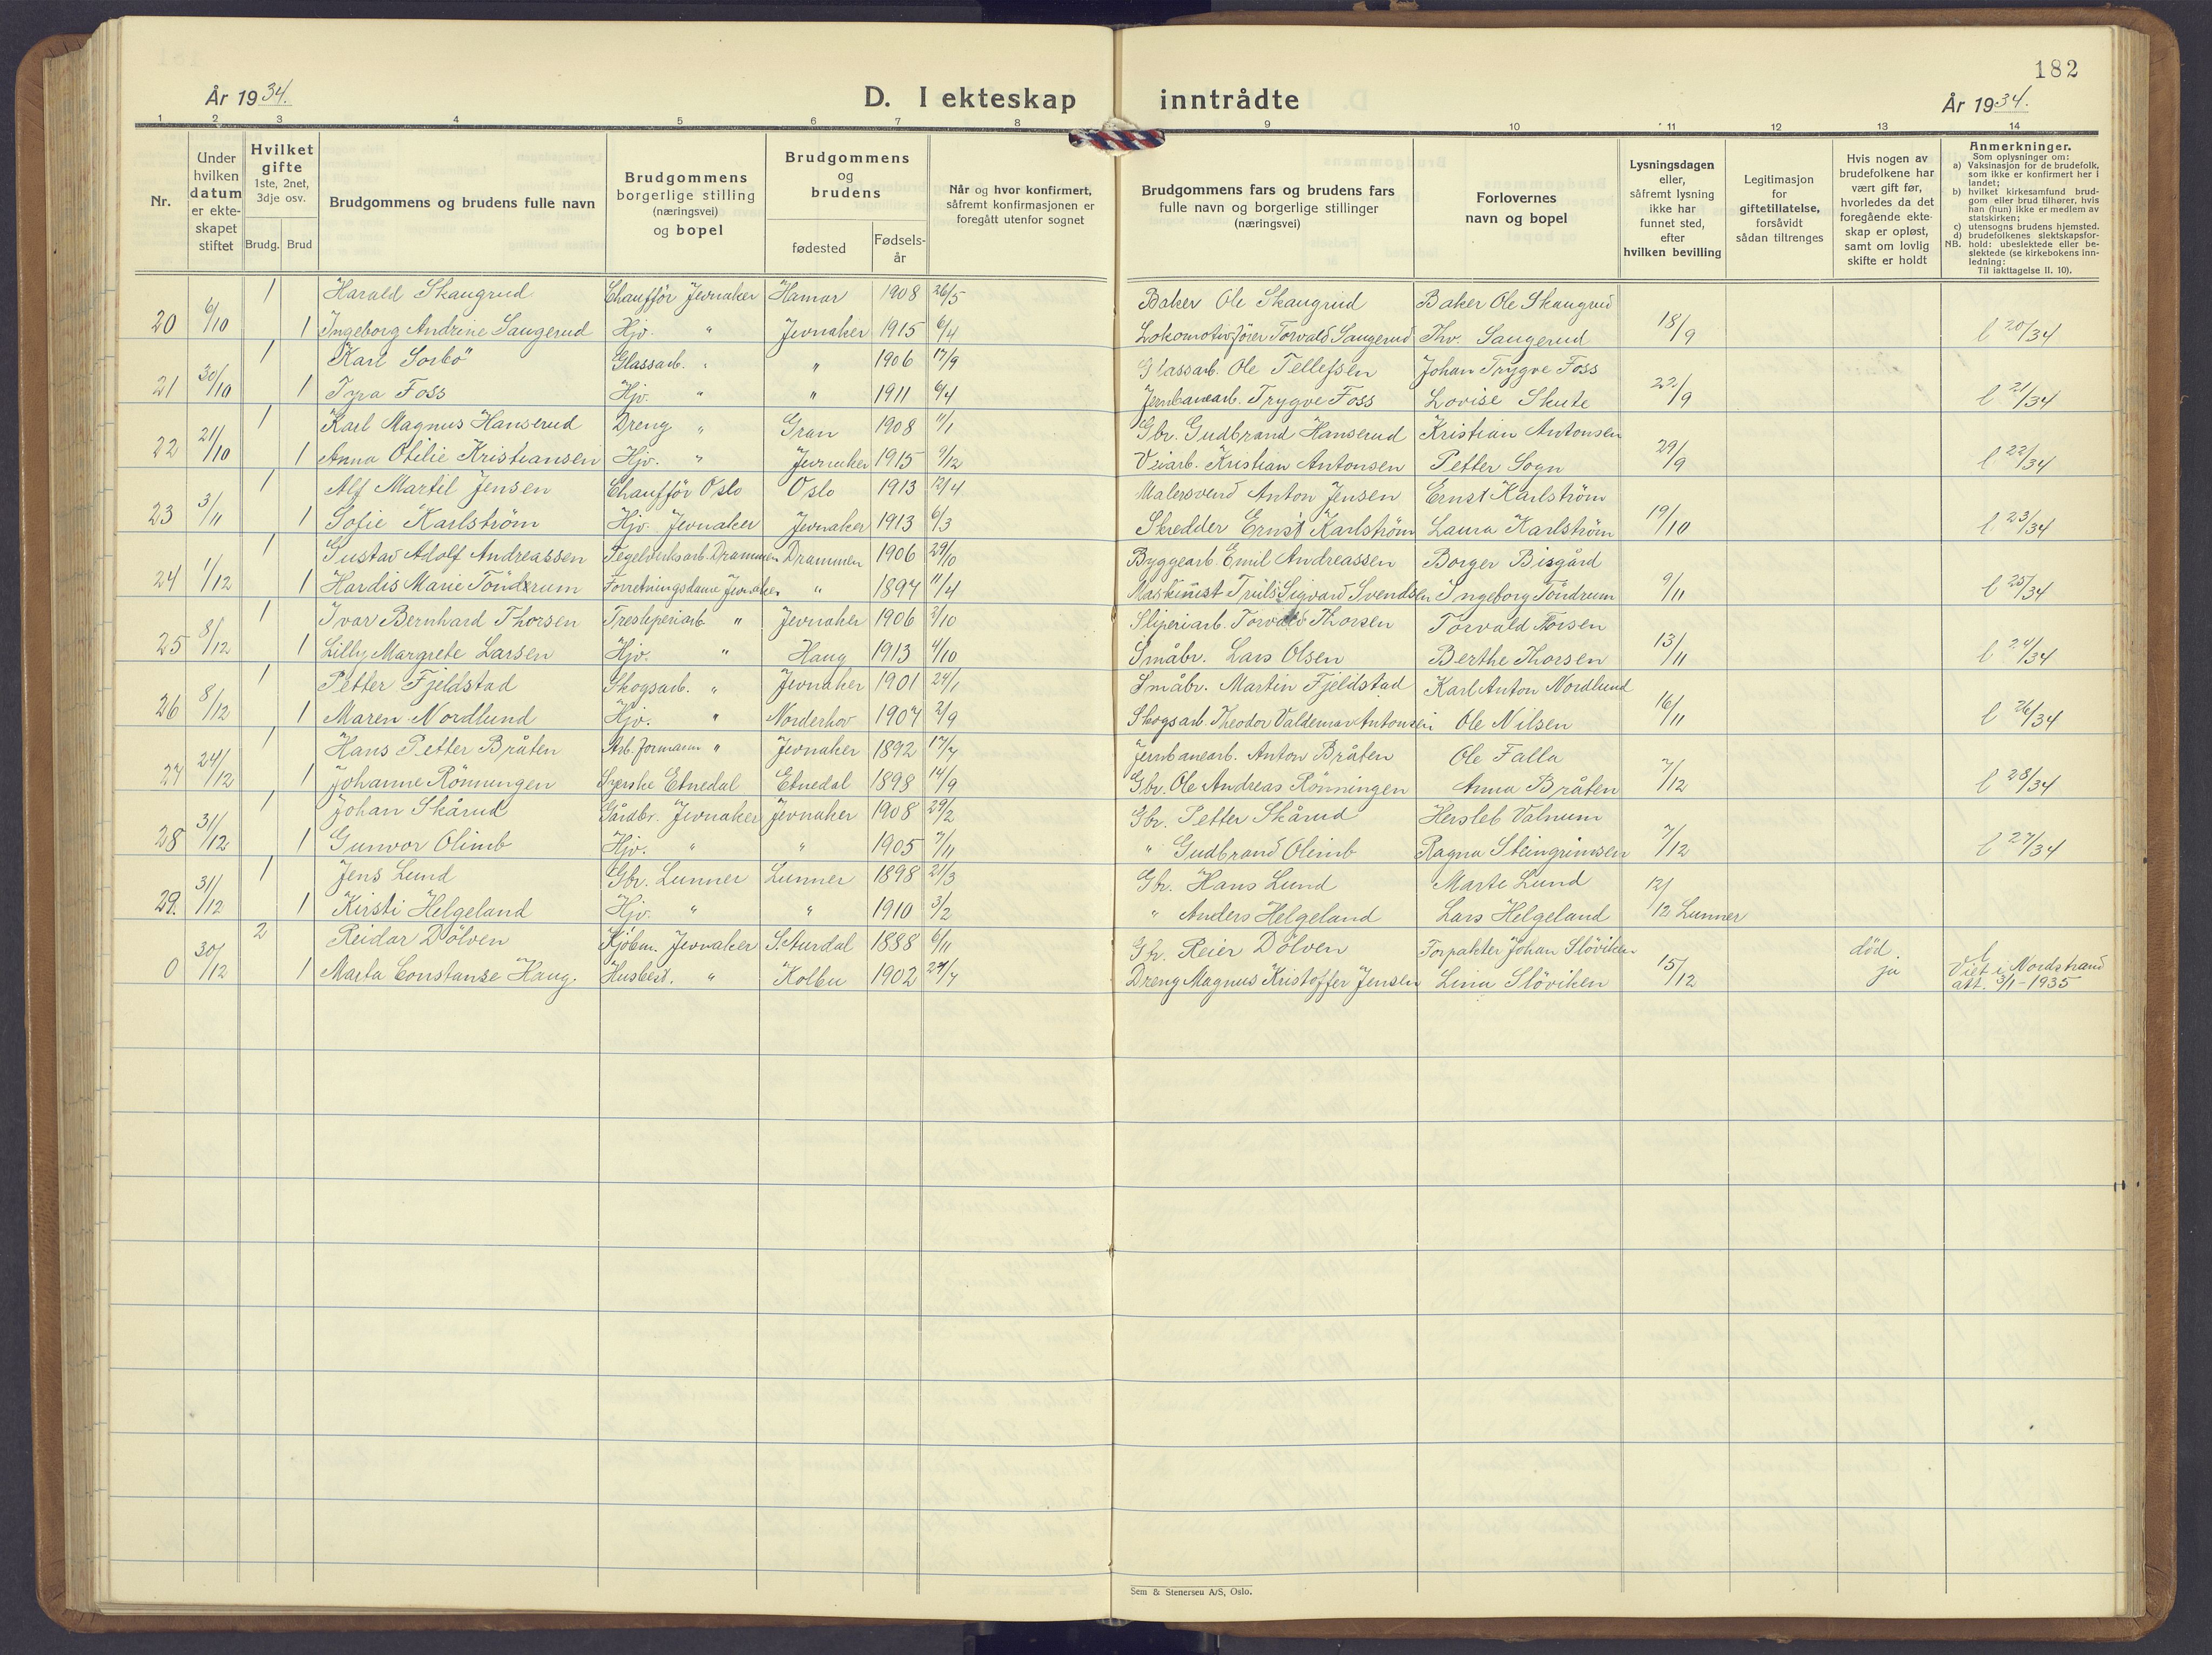 182
År 1934.
D. I ekteskap inntrådte
År 1934.
1 2 3 4 5 6 7 8 9 10 11 12 13 14
Nr.
Under hvilken datum er ekteskapet stiftet
Hvilket gifte 1ste, 2net, 3dje osv.
Brudg. Brud
Brudgommens og brudens fulle navn
Brudgommens borgerlige stilling (næringsvei) og bopel
Brudgommens og brudens
fødested
Fødselsår
Når og hvor konfirmert, såfremt konfirmasjonen er foregått utenfor sognet
Brudgommens fars og brudens fars fulle navn og borgerlige stillinger (næringsvei)
Forlovernes navn og bopel
Lysningsdagen eller, såfremt lysning ikke har funnet sted, efter hvilken bevilling
Legitimasjon for giftetillatelse, forsåvidt sådan tiltrenges
Hvis nogen av brudefolkene har vært gift før, hvorledes da det foregående ekteskap er opløst, samt om lovlig skifte er holdt
Anmerkninger.
Som oplysninger om:
a) Vaksinasjon for de brudefolk, som ikke er konfirmert her i landet;
b) hvilket kirkesamfund brudgom eller brud tilhører, hvis han (hun) ikke er medlem av statskirken;
c) utensogns brudens hjemsted.
d) brudefolkenes slektskapsforhold: ubeslektede eller beslektede (se kirkebokens innledning:
NB. Til iakttagelse II. 10).
1 Harald Skaugrud Chauffør Jevnaker Hamar 1908 26/5 Baker Ole Skaugrud Baker Ole Skaugrud
20 6/10 1 Ingeborg Andrine Saugerud Hjv. " Jevnaker 1915 6/4 Lokomotivfører Torvald Saugerud Thv. Saugerud 18/9 l 20/34
1 Karl Sorbö Glassarb. " " 1906 17/9 Glassarb. Ole Tellefsen Johan Trygve Foss
21 30/10 1 Tyra Foss Hjv. " " 1911 6/4 Jernbanearb. Trygve Foss Lovise Skute 22/9 l 21/34
1 Karl Magnus Hanserud Dreng " Gran 1908 11/1 Gbr. Gudbrand Hanserud Kristian Antonsen
22 21/10 1 Anna Otilie Kristiansen Hjv. " Jevnaker 1915 9/12 Veiarb. Kristian Antonsen Petter Sogn 29/9 l 22/34
1 Alf Martil Jensen Chauffør Oslo Oslo 1913 12/4 Malersvend Anton Jensen Ernst Karlström
23 3/11 1 Sofie Karlström Hjv. Jevnaker Jevnaker 1913 6/3 Skredder Ernst Karlström Laura Karlström 19/10 l 23/34
1 Gustav Adolf Andreassen Tegelverksarb. Drammen Drammen 1906 29/10 Byggearb. Emil Andreassen Borger Bisgård
24 1/12 1 Hardis Marie Töndrum Forretningsdame Jevnaker " 1897 11/4 Maskinist Truls Sigvard Svendsen Ingeborg Töndrum 9/11 l 25/34
1 Ivar Bernhard Thorsen Tresliperiarb " Jevnaker 1906 2/10 Sliperiarb. Torvald Thorsen Torvald Torsen
25 8/12 1 Lilly Margrete Larsen Hjv. " Haug 1913 4/10 Småbr. Lars Olsen Berthe Thorsen 13/11 l 24/34
1 Petter Fjeldstad Skogsarb. " Jevnaker 1901 24/1 Småbr. Martin Fjeldstad Karl Anton Nordlund
26 8/12 1 Maren Nordlund Hjv. " Norderhov 1907 2/9 Skogsarb. Theodor Valdemar Antonsen Ole Nilsen 16/11 l 26/34
1 Hans Petter Bråten Arb. formann " Jevnaker 1892 17/7 Jernbanearb. Anton Bråten Ole Falla
27 24/12 1 Johanne Rönningen Syerske Etnedal Etnedal 1898 14/9 Gbr. Ole Andreas Rönningen Anna Bråten 7/12 l 28/34
1 Johan Skårud Gårdbr. Jevnaker Jevnaker 1908 29/2 Gbr. Petter Skårud Hersleb Valnum
28 31/12 1 Gunvor Olimb Hjv. " " 1905 7/11 " Gudbrand Olimb Ragna Steingrimsen 7/12 l 27/34
1 Jens Lund Gbr. Lunner Lunner 1898 21/3 Gbr. Hans Lund Marte Lund
29. 31/12 1 Kirsti Helgeland Hjv. " " 1910 3/2 " Anders Helgeland Lars Helgeland 12/12 Lunner
2 Reidar Dölven Kjöbm. Jevnaker S. Aurdal 1888 6/11 Gbr. Reier Dölven Forpakter Johan Slöviken död. l
0 30/12 1 Marta Constanse Haug. Husbest. " Kolbu 1902 27/7 Dreng Magnus Kristoffer Jensen Lina Slöviken 15/12 ja Viet i Nordstrand
att. 3/1-1935
Sem & Stenersen A/S, Oslo.